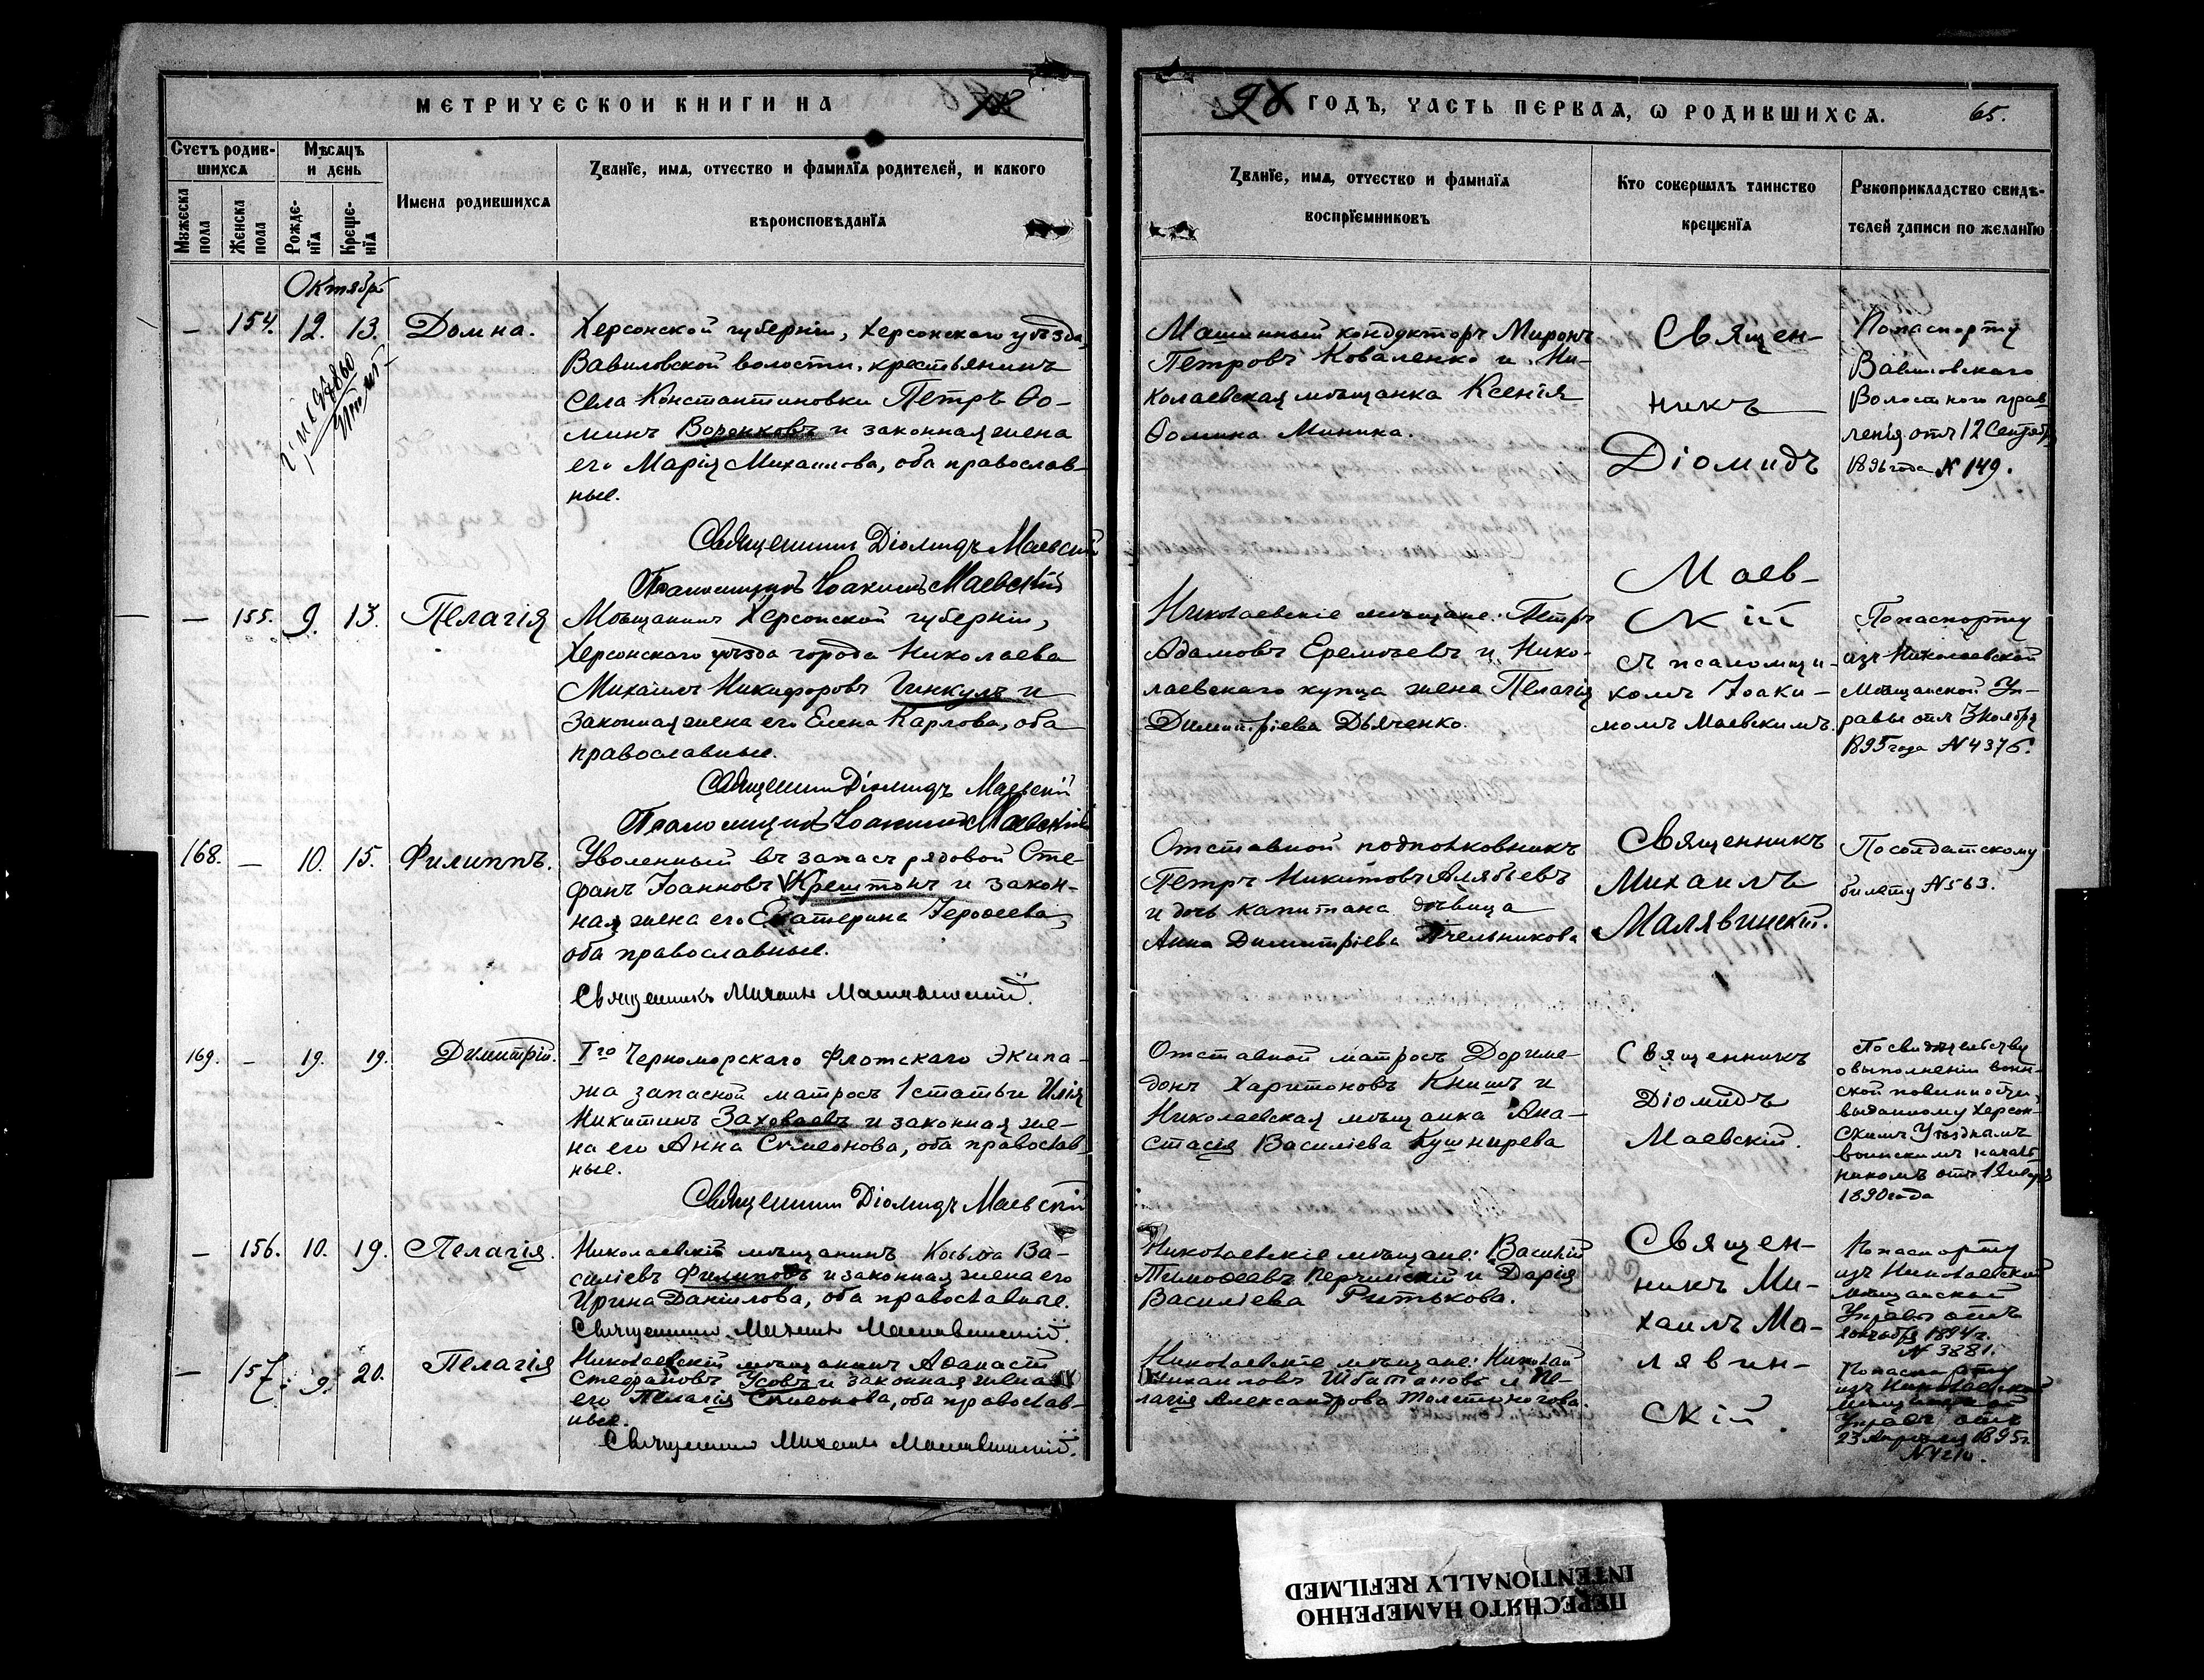 МЕТРИЧЕСКОЙ КНИГИ НА
ГОДЪ, ЧАСТЬ ПЕРВАЯ, Ѡ РОДИВШИХСЯ.
65.
Счетъ родив-
шихся
Мужеска пола
Женска пола
Мѣсяцъ
и день
Рожде-
нїя
Креще-
нїя
Имена родившихся
Званїе, имя, отчество и фамилїя родителей, и какого
вѣроисповѣданїя
Званїе, имя, отчество и фамилїя
воспрїемниковъ
Кто совершалъ таинство
крещенїя
Рукоприкладство свидѣ-
телей записи по желанїю
Октябрь
— 154. 12. 13. Домна.
Херсонской губерніи, Херсонскаго уѣзда,
Вавиловской волости, крестьянинъ
села Константиновки Петръ Ѳо-
минъ Воронковъ и законная жена
его Марія Михаилова, оба православ-
ные.
Священникъ Діомидъ Маевскій
Псаломщикъ Іоакимъ Маевскій
Машинный кондукторъ Миронъ
Петровъ Коваленко и Ни-
колаевская мѣщанка Ксенія
Ѳомина Миника.
Священ-
никъ
Діомидъ
Маев-
скій
съ псаломщи-
комъ Іоаки-
момъ Маевскимъ.
По паспорту
Вавиловскаго
Волостного прав-
ленія отъ 12 Сентября
1896 года № 149.
— 155. 9. 13. Пелагія
Мѣщанинъ Херсонской губерніи,
Херсонскаго уѣзда города Николаева
Михаилъ Никифоровъ Гинкулъ и
законная жена его Елена Карлова, оба
православные.
Священникъ Діомидъ Маевскій
Псаломщикъ Іоакимъ Маевскій
Николаевскіе мѣщане: Петръ
Адамовъ Еремѣевъ и Нико-
лаевскаго купца жена Пелагія
Димитріева Дьяченко.
По паспорту
изъ Николаевской
Мѣщанской Уп-
равы отъ 3 ноября
1895 года № 4376.
168. — 10. 15. Филиппъ.
Уволенный въ запасъ рядовой Сте-
фанъ Іоанновъ Крештонъ и закон-
ная жена его Екатерина Іероѳеева,
оба православные.
Священникъ Михаилъ Малявинскій.
Отставной подполковникъ
Петръ Никитовъ Алябьевъ
и дочь капитана дѣвица
Анна Димитріева Пчельникова
Священникъ
Михаилъ
Малявинскій.
По солдатскому
билету № 563.
169. — 19. 19. Димитрій.
1го Черноморскаго Флотскаго Экипа-
жа запасной матросъ 1 статьи Илія
Никитинъ Заховаевъ и законная же-
на его Анна Симеонова, оба православ-
ные.
Священникъ Діомидъ Маевскій
Отставной матросъ Дориме-
донъ Харитоновъ Книшъ и
Николаевская мѣщанка Ана-
стасія Василіева Кушнирева
Священникъ
Діомидъ
Маевскій.
По свидѣтельству
о выполненіи воин-
ской повинности,
выданному Херсон-
скимъ Уѣзднымъ
воинскимъ началь-
никомъ отъ 1 Января
1890 года
— 156. 10. 19. Пелагія.
Николаевскій мѣщанинъ Косьма Ва-
силіевъ Филиповъ и законная жена его
Ирина Даніилова, оба православные.
Священникъ Михаилъ Малявинскій.
Николаевскіе мѣщане: Василій
Тимоѳеевъ Перчинскій и Дарія
Василіева Ритькова.
Священ-
никъ Ми-
хаилъ Ма-
лявин-
скій.
По паспорту
изъ Николаевской
Мѣщанской
Управы отъ
1894 г.
№ 3881.
— 157. 9. 20. Пелагія
Николаевскій мѣщанинъ Аѳанасій
Стефановъ Усовъ и законная жена
его Пелагія Симеонова, оба православ-
ные.
Священникъ Михаилъ Малявинскій.
Николаевскіе мѣщане: Николай
Михаиловъ Шбатановъ и Пе-
лагія Александрова Толстоногова.
По паспорту
изъ Николаевской
Мѣщанской
Управы отъ
23 Апрѣля 1895 г.
ПЕРЕСНЯТО НАМЕРЕННО
INTENTIONALLY REFILMED